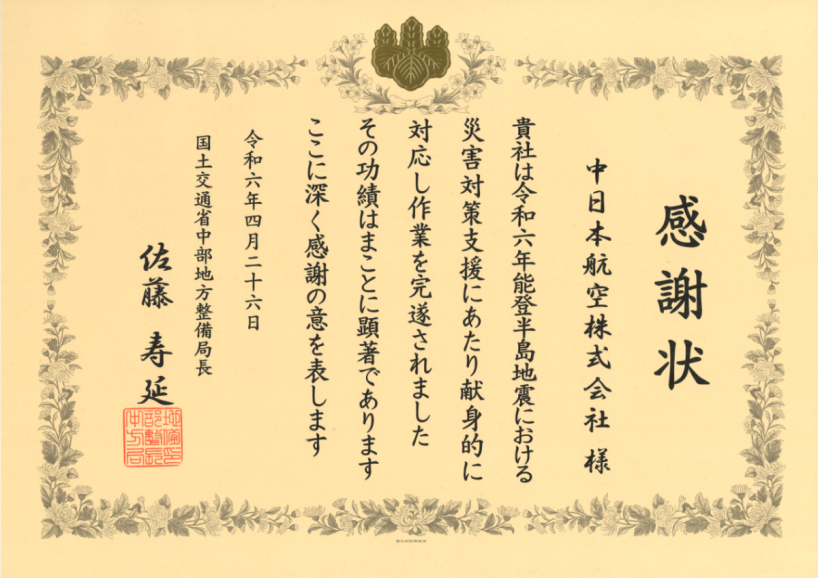 感謝状
中日本航空株式会社 様
貴社は令和六年能登半島地震における
災害対策支援にあたり献身的に
対応し作業を完遂されました
その功績はまことに顕著であります
ここに深く感謝の意を表します
令和六年四月二十六日
国土交通省中部地方整備局長
佐藤 寿延